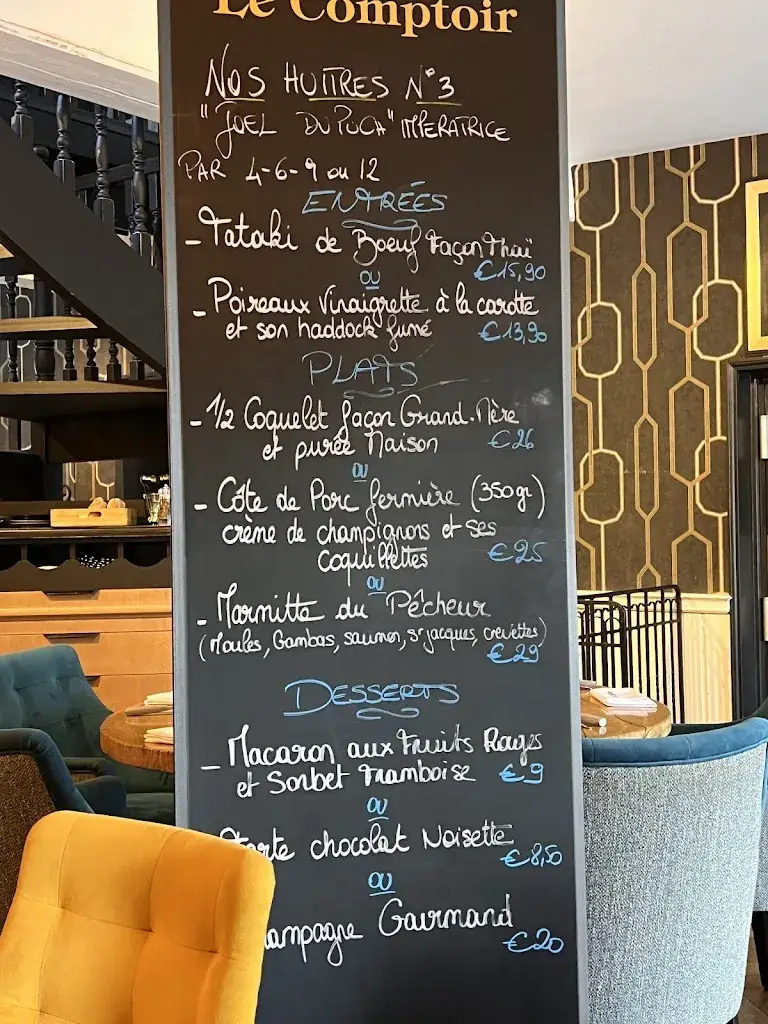 Le Comptoir
NOS HUITRES N°3
"JOEL DUPUCH" IMPERATRICE
PAR 4-6-9 ou 12
ENTRÉES
- Tataki de Boeuf façon Thaï
€15,90
ou
- Poireaux Vinaigrette à la carotte
et son haddock fumé €13,90
PLATS
- 1/2 Coquelet façon Grand-Mère
et purée Maison €26
ou
- Côte de Porc fermière (350gr)
crème de champignons et ses
coquillettes €25
ou
- Marmitte du Pêcheur
(Moules, Gambas, saumon, St jacques, crevettes)
€29
DESSERTS
- Macaron aux Fruits Rouges
et Sorbet Framboise €9
ou
Tarte chocolat Noisette
€8,50
ou
ampagne Gourmand
€20